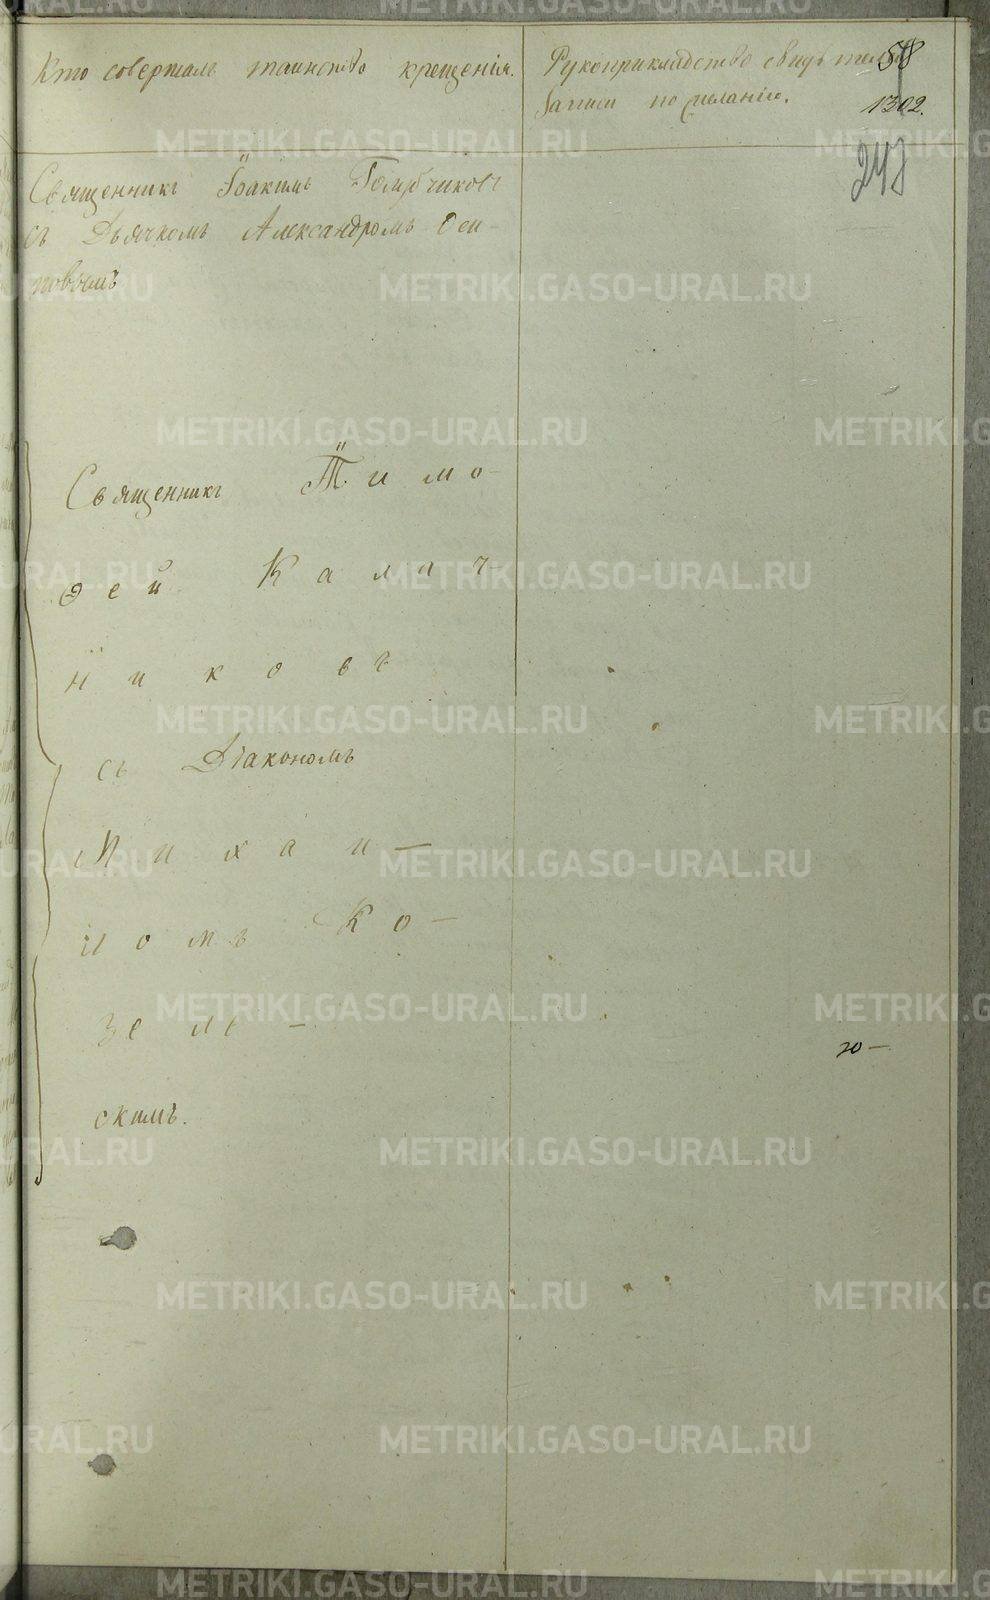 Кто совершалъ таинство крещенія.
Рукоприкладство свидѣтелей
записи по желанію.
58
1302.
243
Священникъ Іоакимъ Голубчиковъ
съ Дьячкомъ Александромъ Оси-
повымъ
Священникъ Тимо-
ѳей Калач-
никовъ
съ Діакономъ
Михаи-
ломъ Ко-
зель-
скимъ.
METRIKI.GASO-URAL.RU